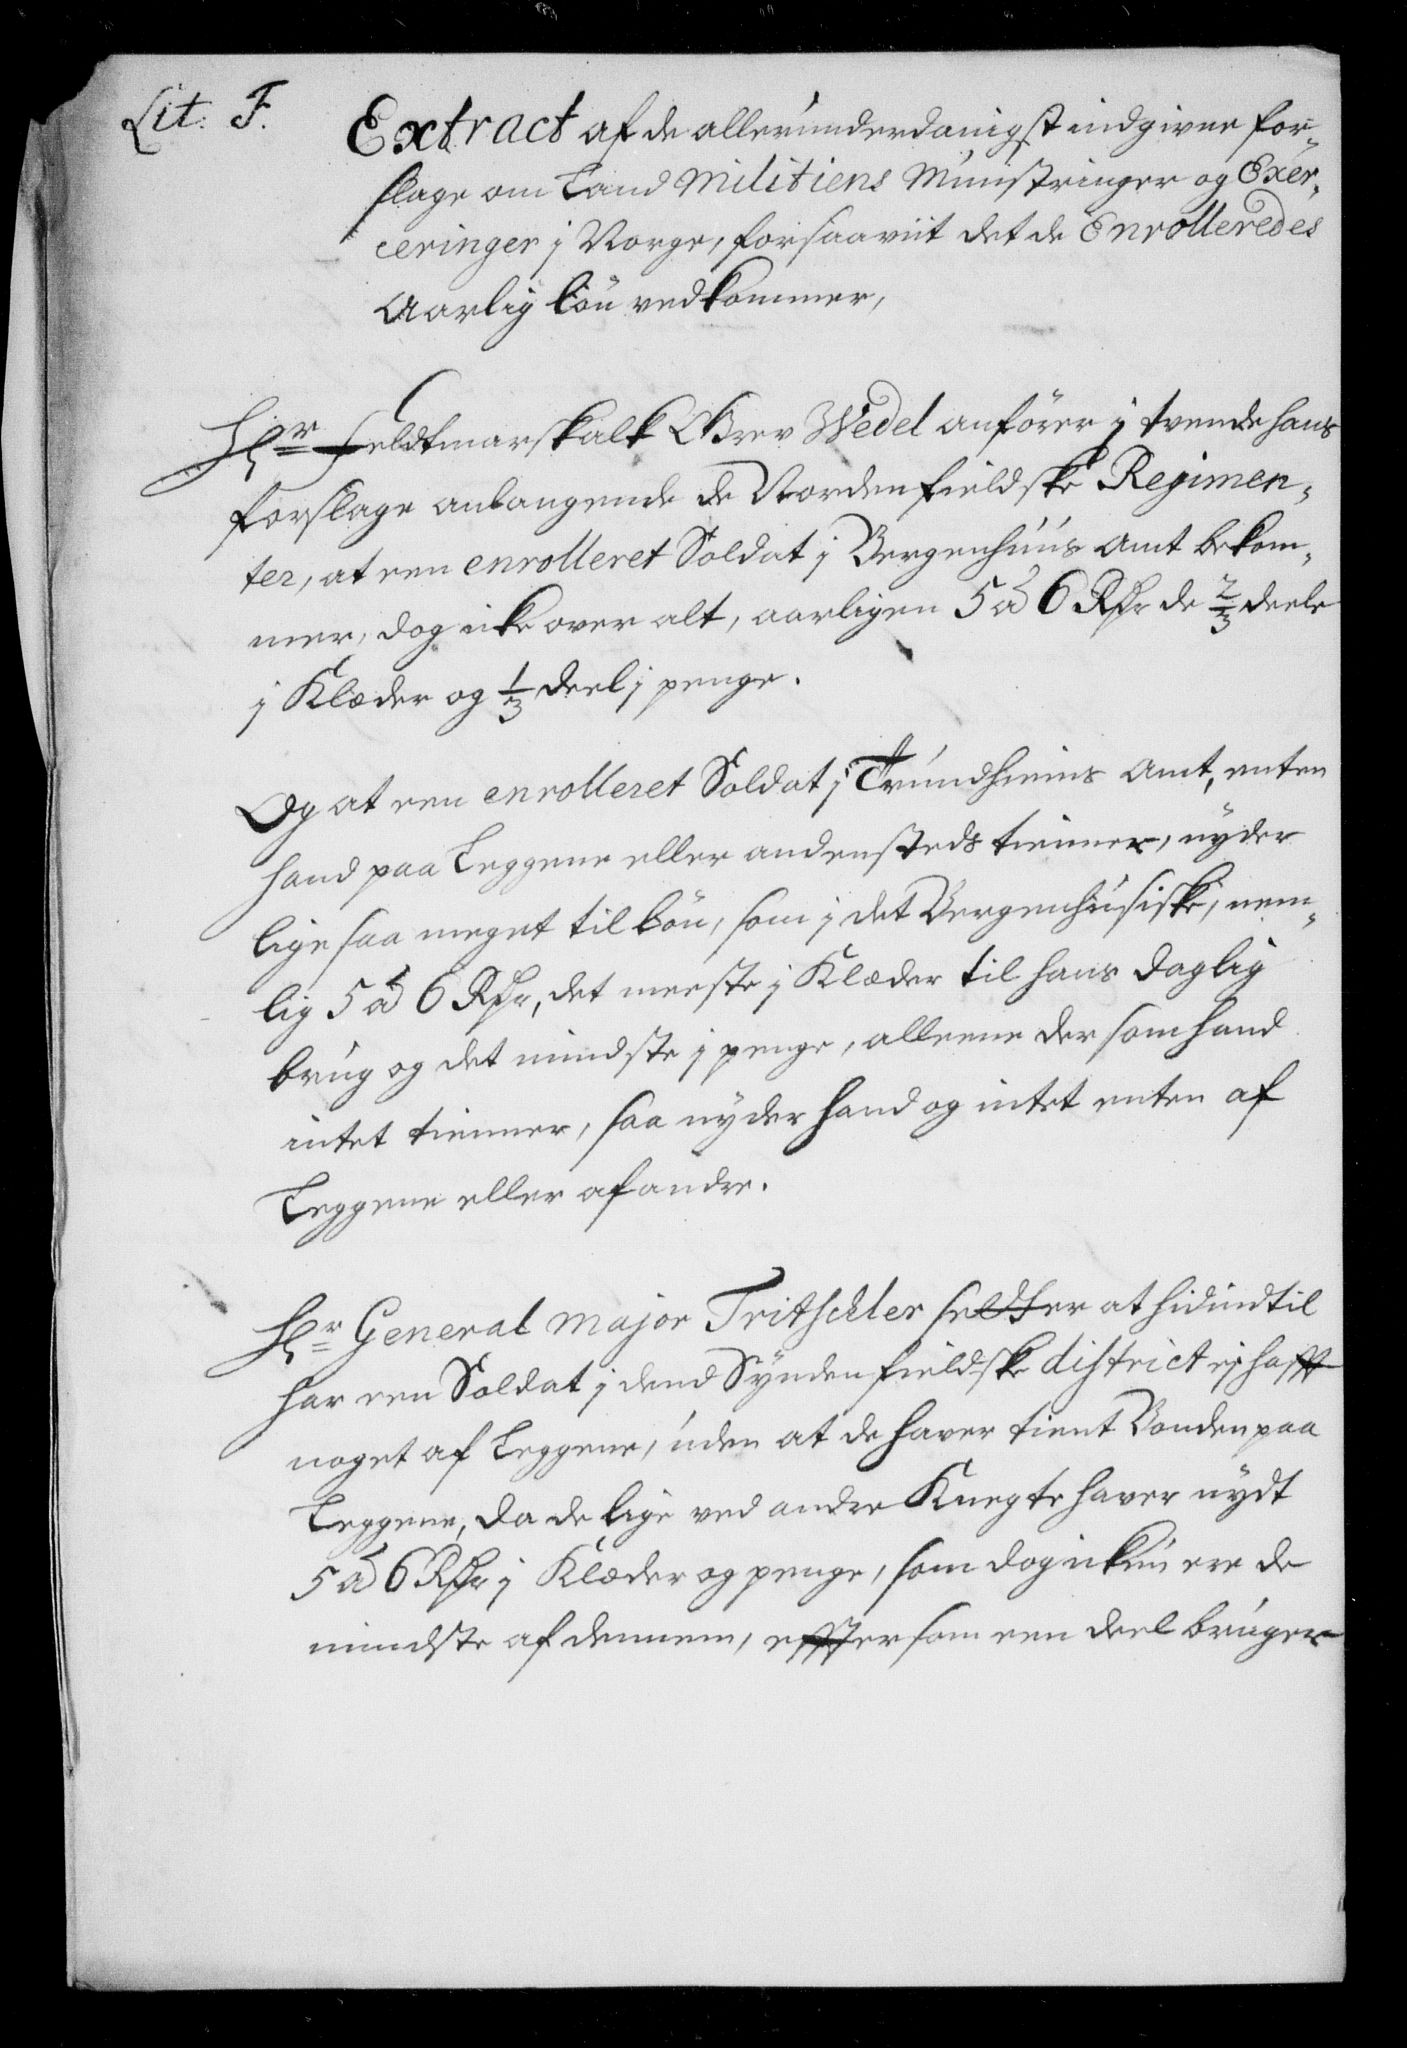 Lit. F.
Extract af de allerunderdanigst indgivne for-
slage om Land Militiens Münstringer og Exer-
ceringer j Norge, forsaaviit det de Enrolleredes
Aarlig løn vedkommer,
Hr Feldtmarskalk Grev Wedel anfører j tvende hans
forslage anlangende de Nordenfieldske Regimen-
ter, at een enrolleret Soldat j Bergenhuus Amt bekom-
mer, dog icke over alt, aarligen 5 à 6 Rdr de 2/3 deele
j Klæder og 1/3 deel j penge.
Og at een enrolleret Soldat j Trundhiems Amt, enten
hand paa Leggene eller andensteds tienner, nyder
lige saa meget til løn, som j det Bergenhusiske, nem-
lig 5 à 6 Rdr, det meeste j Klæder til hans daglig
brug og det mindste j penge, alleene der som hand
intet tienner, saa nyder hand og intet enten af
Leggene eller af andre.
Hr General Major Tritschler sætter at hidindtil
har een Soldat j dend Syndenfieldske district ej hafft
noget af Leggene, uden at de haver tient Bonden paa
Leggene, da de lige ved andre Knegte haver nydt
5 à 6 Rdr j Klæder og penge, som dog ickun ere de
mindste af dennem, efftersom een deel bruger